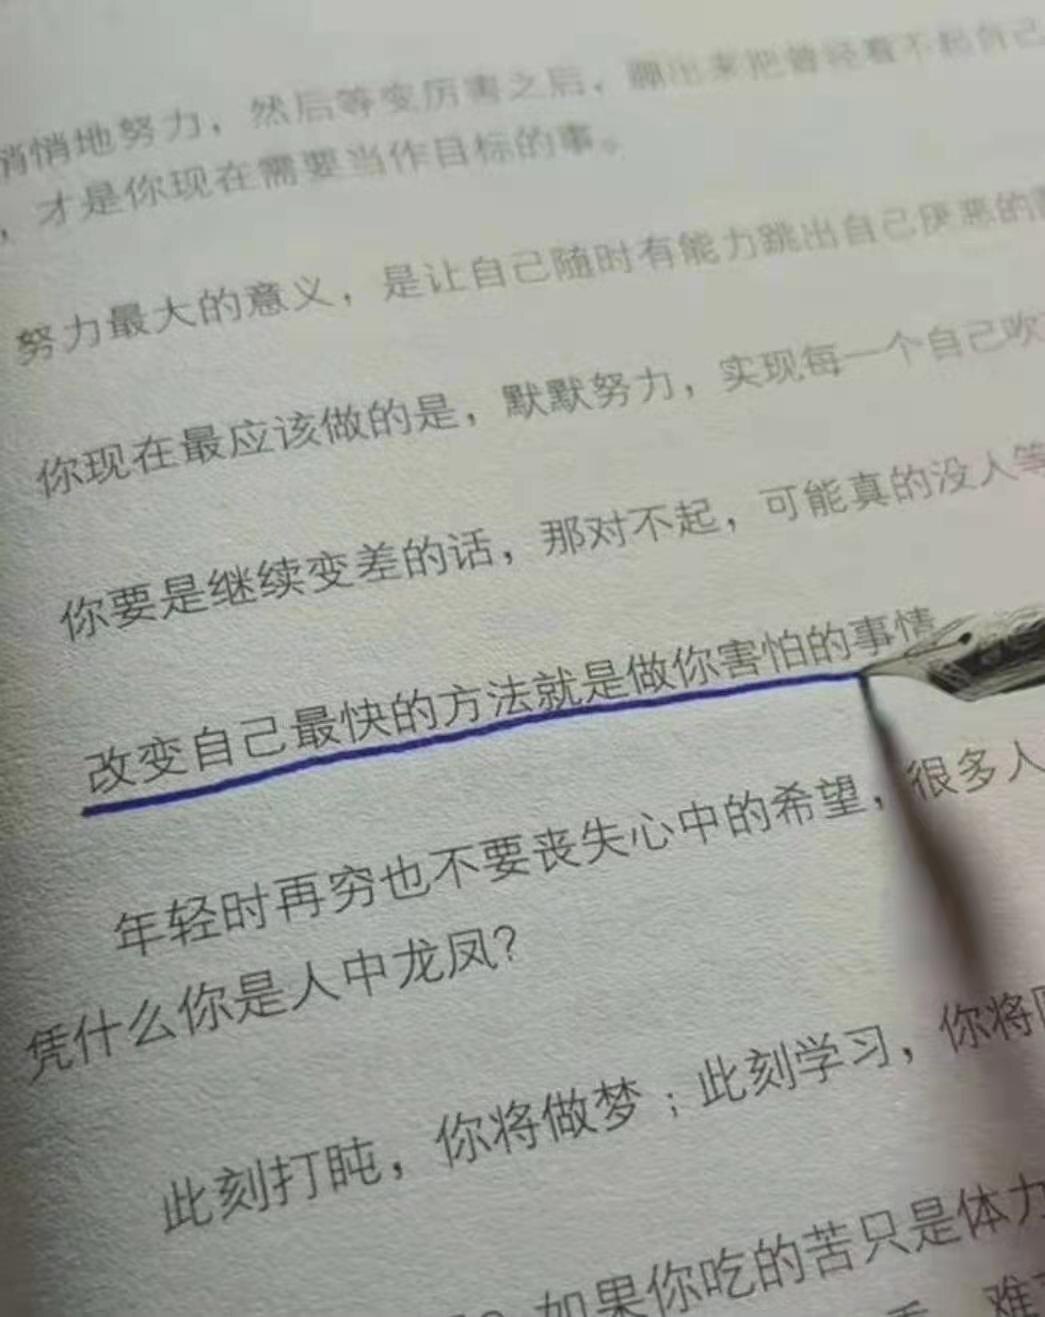 悄悄地努力，然后等变厉害之后，蹦出来把曾经看不起自己
，才是你现在需要当作目标的事。
努力最大的意义，是让自己随时有能力跳出自己厌恶的
你现在最应该做的是，默默努力，实现每一个自己吹
你要是继续变差的话，那对不起，可能真的没人等
改变自己最快的方法就是做你害怕的事情
年轻时再穷也不要丧失心中的希望，很多人
凭什么你是人中龙凤?
此刻打盹，你将做梦；此刻学习，你将
如果你吃的苦只是体力
难